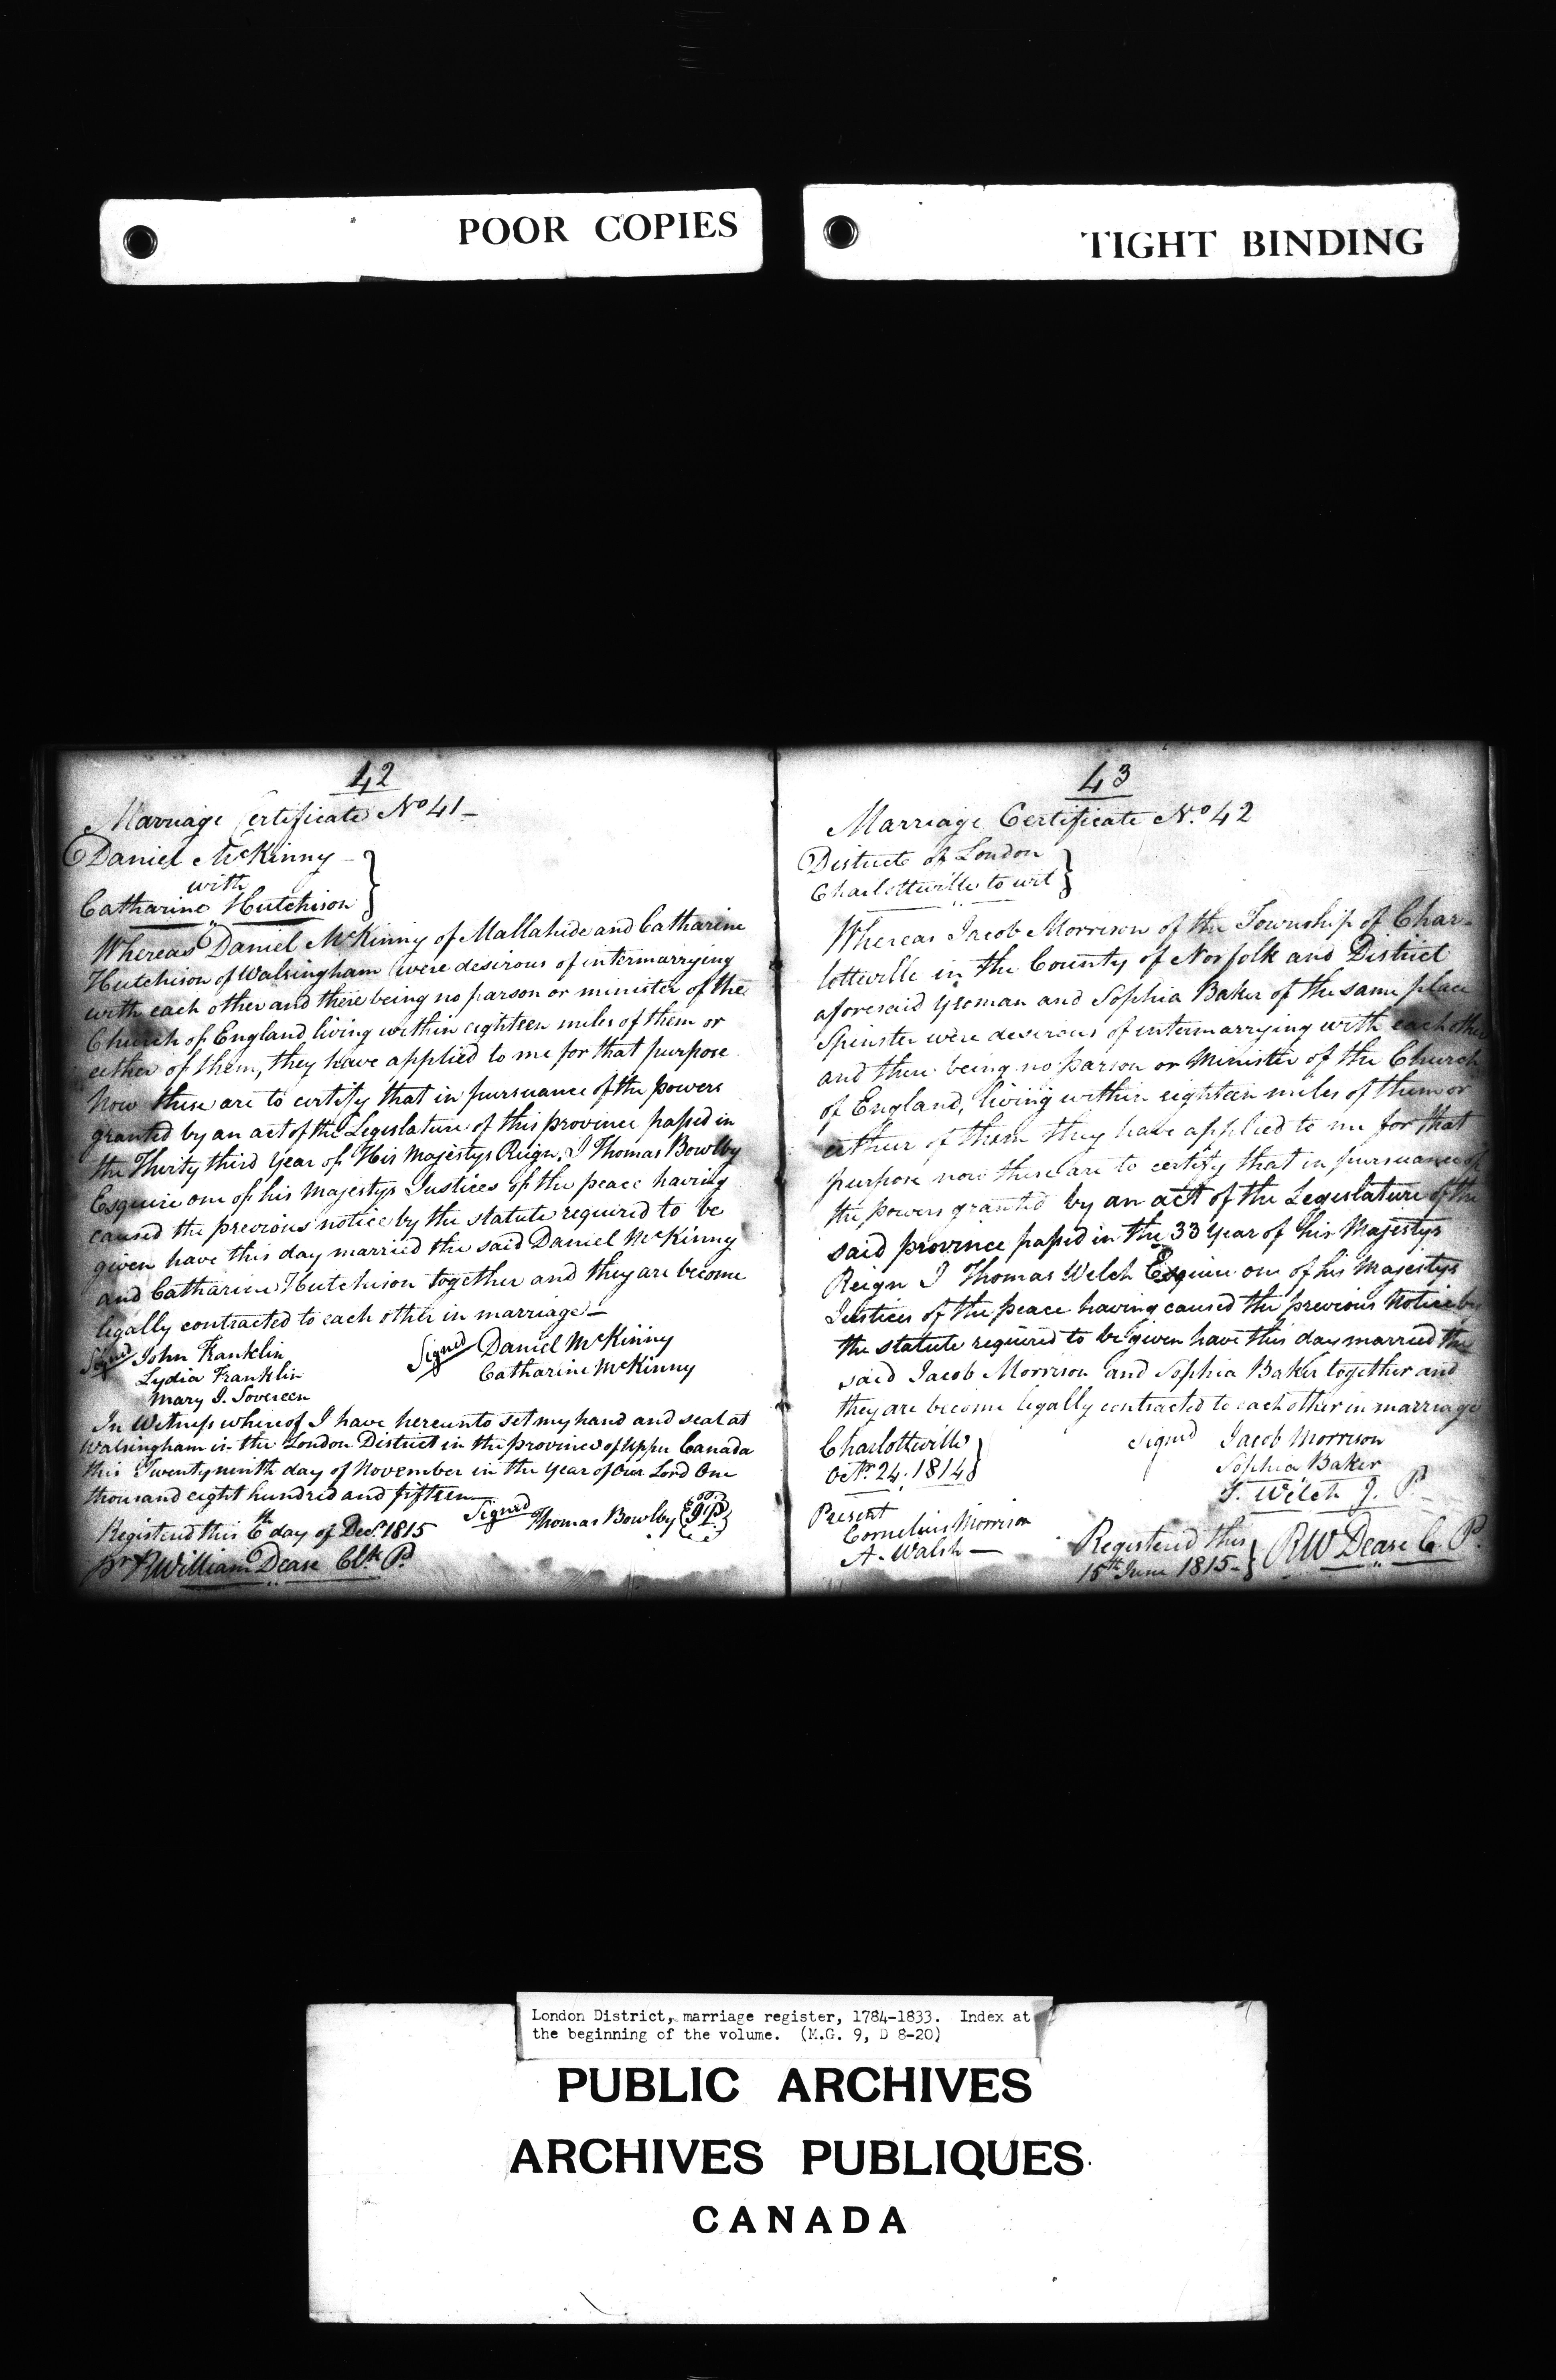 POOR COPIES
TIGHT BINDING
42
Marriage Certificate No 41 -
Daniel McKinny -
with
Catharine Hutchison
Whereas Daniel McKinny of Mallahide and Catharine
Hutchison of Walsingham were desirous of intermarrying
with each other and there being no parson or minister of the
Church of England living within eighteen miles of them or
either of them, they have applied to me for that purpose
Now these are to certify that in pursuance of the powers
granted by an act of the Legislature of this province passed in
the Thirty third Year of His Majestys Reign. I Thomas Bowlby
Esquire one of his Majestys Justices of the peace having
caused the previous notice by the statute required to be
given have this day married the said Daniel McKinny
and Catharine Hutchison together and they are become
legally contracted to each other in marriage -
Signd John Franklin
Lydia Franklin
Mary J. Sovereen
Signd Daniel McKinny
Catharine McKinny
In Witness whereof I have hereunto set my hand and seal at
Walsingham in the London District in the province of Upper Canada
this Twenty ninth day of November in the Year of Our Lord One
thousand eight hundred and fifteen
Signd Thomas Bowlby J.P.
Registered this 6th day of Decr. 1815
pr R William Dease Clk. P.
43
Marriage Certificate No. 42
District of London
Charlotteville to wit
Whereas Jacob Morrison of the Township of Char-
lotteville in the County of Norfolk and District
aforesaid Yeoman and Sophia Baker of the same place
Spinster were desirous of intermarrying with each other
and there being no parson or Minister of the Church
of England, living within eighteen miles of them or
either of them they have applied to me for that
purpose now these are to certify that in pursuance of
the powers granted by an act of the Legislature of the
said province passed in the 33 Year of his Majestys
Reign I Thomas Welch Esquire one of his Majestys
Justices of the peace having caused the previous Notice by
the statute required to be given have this day married the
said Jacob Morrison and Sophia Baker together and
they are become legally contracted to each other in marriage
Charlotteville
Octr. 24. 1814
Signd Jacob Morrison
Sophia Baker
T. Welch J. P.
Present
Cornelius Morrison
A. Walsh -
Registered this
15th June 1815 -
RW Dease C. P.
London District, marriage register, 1784-1833. Index at
the beginning of the volume. (M.G. 9, D 8-20)
PUBLIC ARCHIVES
ARCHIVES PUBLIQUES
CANADA